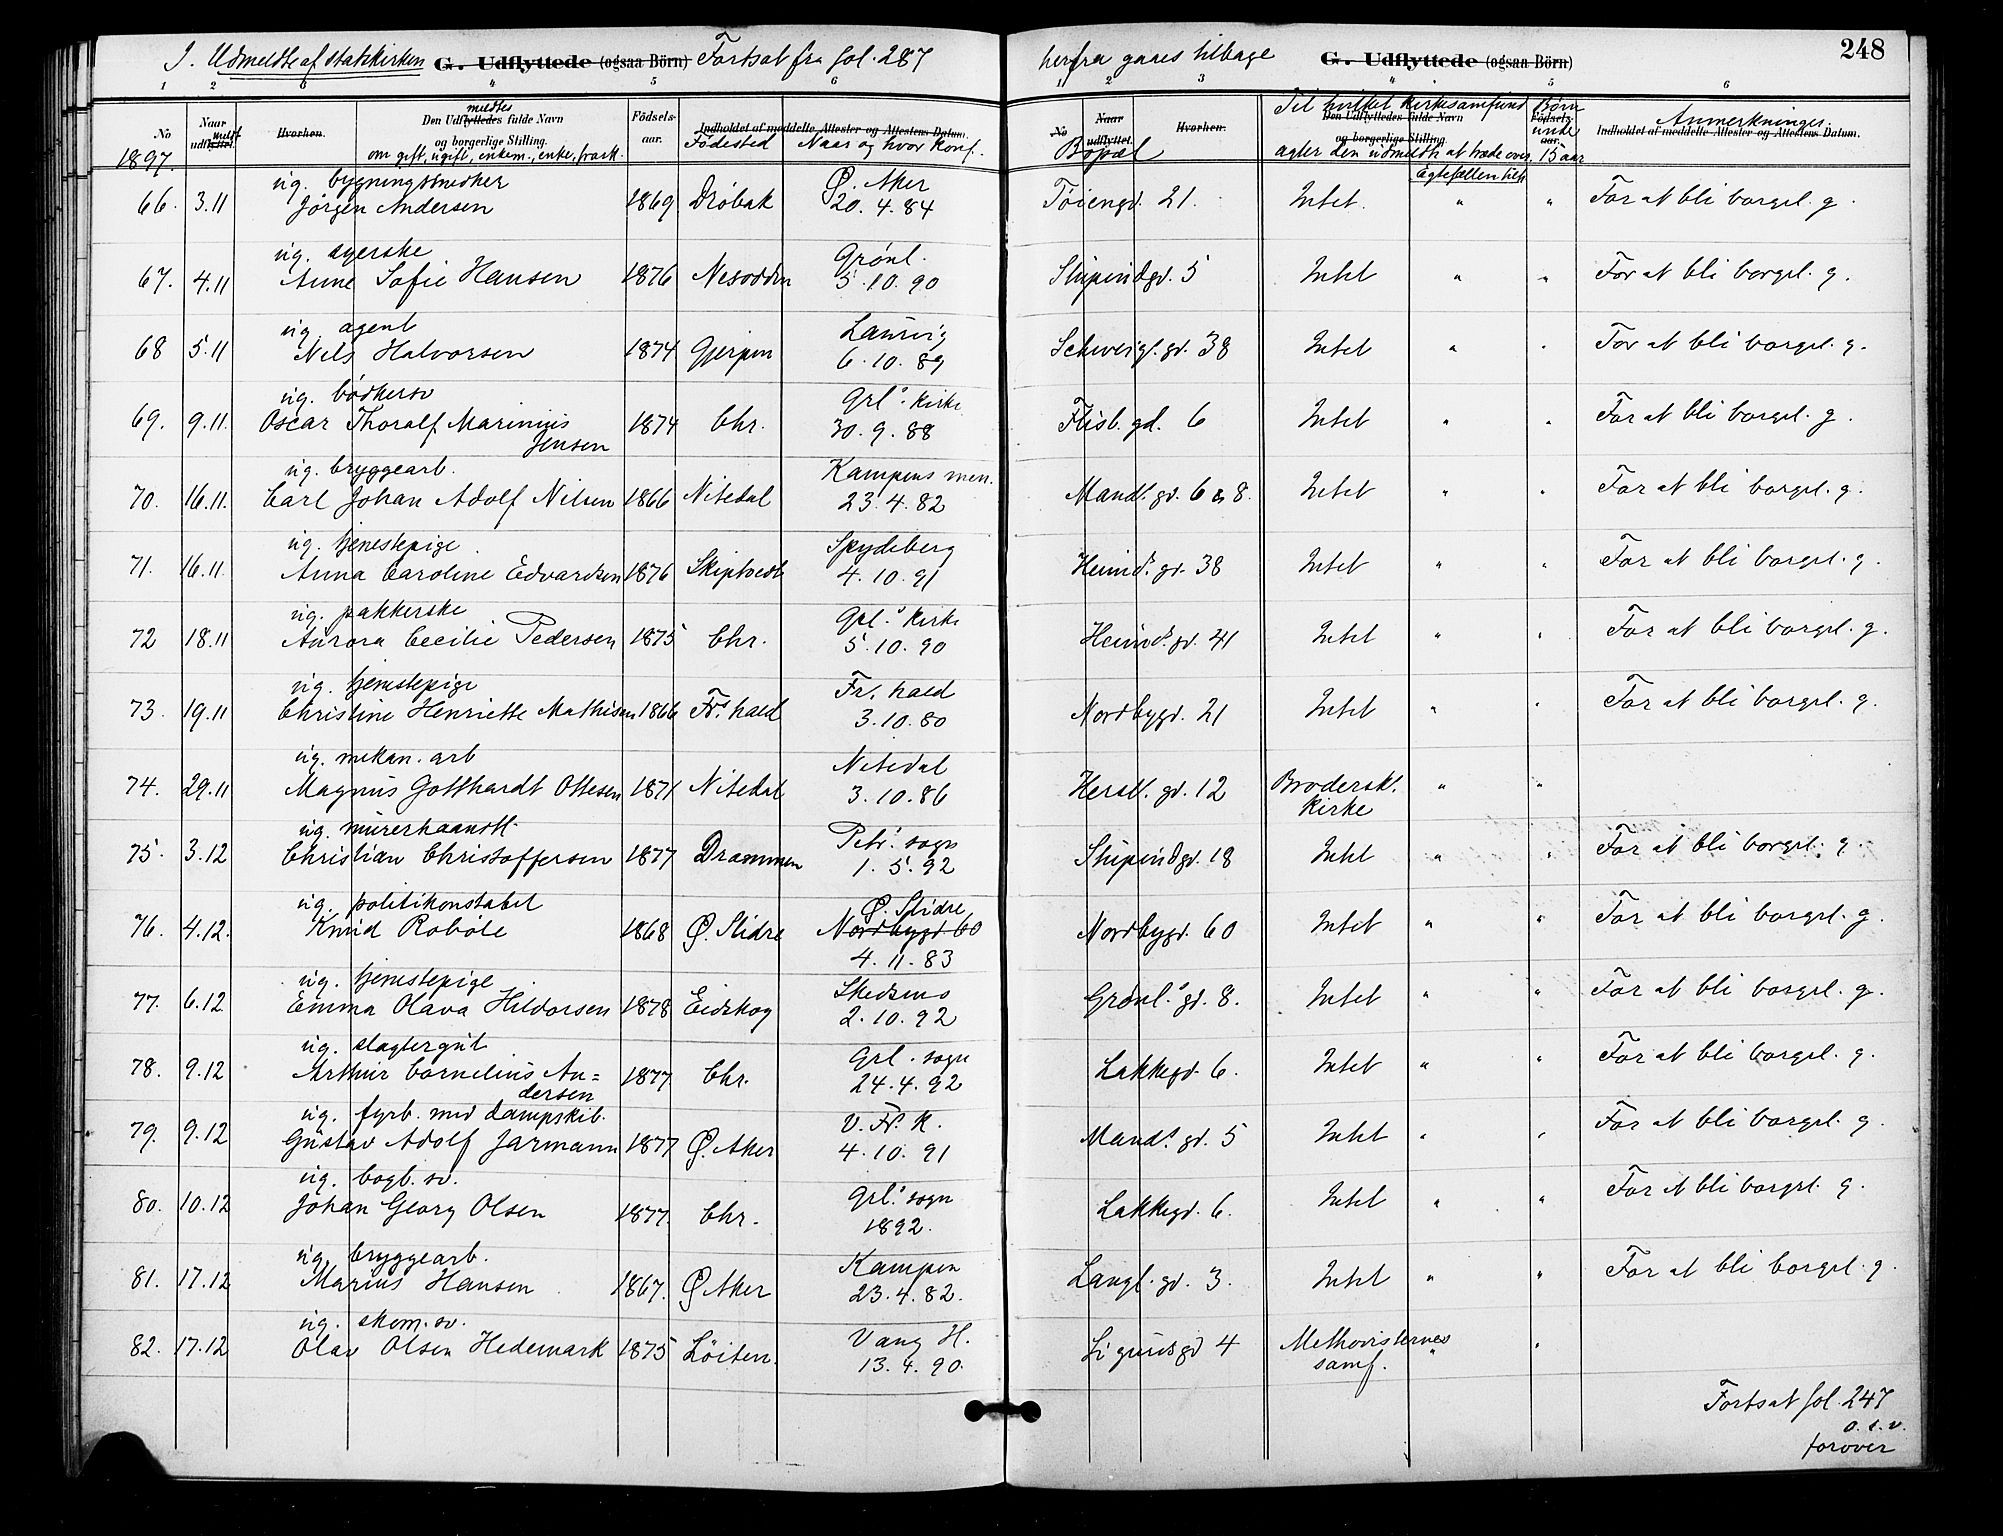 J. Udmeldte af statskirken G. Udflyttede (ogsaa Börn) Fortsat fra fol. 287
herfra gaaes tilbage G. Udflyttede (ogsaa Börn) 248
1 2 3 4 5 6
1 2 3 4 5 6
No Naar udflyttet. meldt Hvorhen. Den Udflyttedes fulde Navn og borgerlige Stilling. meldtes Fødselsaar. Indholdet af meddelte Attester og Attestens Datum.
om gift, ugift, enkem., enke, frask. Fødested Naar og hvor konf.
No Naar udflyttet. Hvorhen. Den Udflyttedes fulde Navn og borgerlige Stilling. Fødselsaar. Indholdet af meddelte Attester og Attestens Datum.
Bopæl Til hvilket kirkesamfund agter den udmeldte at træde over. Børn under 15 aar Anmerkninger.
Ægtefællen
1897.
ug. bygningssnedker Ø. Aker
66. 3.11 Jörgen Andersen 1869 Dröbak 20.4.84 Töiengd. 21. Intet. " " For at bli borgrl. g.
ug. syerske Grönl.
67. 4.11 Anne Sofie Hansen 1876 Nesodden 5.10.90 Stupindgd. 5 Intet " " For at bli borgrl. g.
ug. agent Laurvig
68 5.11 Nils Halvorsen 1874 Gjerpen 6.10.89 Schweigl. gd. 38 Intet " " For at bli borgrl. g.
ug. bödkersv Grl.s kirke
69. 9.11. Oscar Thoralf Marinius 1874 Chr. 30.9.88 Flisb. gd. 6 Intet " " For at bli borgrl. g.
Jensen
ug. bryggearb. Kampens men.
70. 16.11. Carl Johan Adolf Nilsen 1866 Nitedal 23.4.82 Mandl. gd. 6 & 8. Intet " " For at bli borgrl. g.
ug. tjenestepige Spydeberg
71. 16.11. Anna Caroline Edvardsen 1876 Skiptvedt 4.10.91 Heimd. gd. 38 Intet " " For at bli borgrl. g.
ug. pakkerske Grl.s kirke
72 18.11 Aurora Cecilie Pedersen 1875 Chr. 5.10.90 Heimd. gd. 41 Intet " " For at bli borgrl. g.
ug. tjenestepige Fr. hald
73. 19.11 Christine Henriette Mathisen 1866 Frs hald 3.10.80 Nordbygd. 21 Intet " " For at bli borgrl. g.
ug. mekan. arb Nitedal
74. 29.11 Magnus Gotthardt Ottesen 1871 Nitedal 3.10.86 Hersl. gd. 12 Brodersk. " "
kirke
ug. murerhaandtl. Petri sogn
75. 3.12 Christian Christoffersen 1877 Drammen 1.5.92 Stupindgd. 18 Intet " " For at bli borgrl. g.
ug. politikonstabel Ø. Slidre
76. 4.12. Knud Robøle 1868 Ø. Slidre Nordbygd 60 Nordbygd. 60 Intet " " For at bli borgrl. g.
4.11.83
ug. tjenestepige Skedsmo
77. 6.12 Emma Olava Hildorsen 1878 Eidskog 2.10.92 Grönl.s gd. 8. Intet " " For at bli borgrl. g.
ug. slagtergut Grl. sogn
78. 9.12 Arthur Cornelius An= 1877 Chr. 24.4.92 Lakkegd. 6. Intet " " For at bli borgrl. g.
dersen
ug. fyrb. med dampskib. V. Fr. K.
79. 9.12 Gustav Adolf Jarmann 1877 Ø. Aker 4.10.91 Mandl. gd. 5 Intet " " For at bli borgrl. g.
ug. bogb. sv. Grl.s sogn
80. 10.12 Johan Georg Olsen 1877. Chr. 1892. Lakkegd. 6. Intet " " For at bli borgrl. g.
ug. bryggearb. Kampen
81. 17.12 Marius Hansen 1867. Ø Aker 23.4.82. Langl. gd. 3. Intet " " For at bli borgrl. g.
ug. skom. sv. Vang H.
82. 17.12 Olav Olsen Hedemark 1875 Löiten. 13.4.90. Sigurdsgd 4 Methodisternes " "
samf.
Fortsat fol. 247
o.s.v.
forover